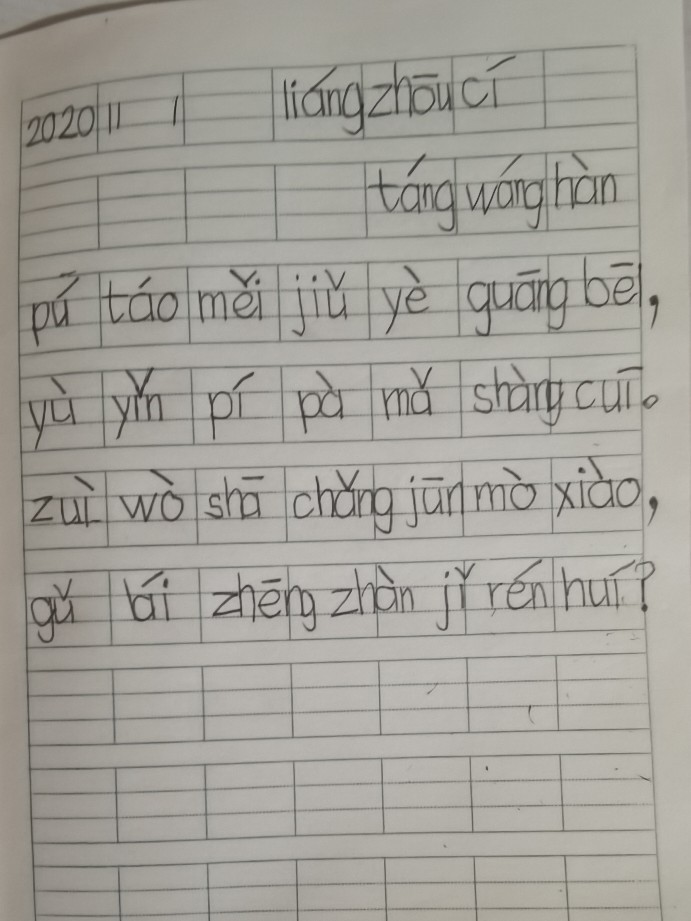 2020 11 1 liáng zhōu cí
táng wáng hàn
pú táo měi jiǔ yè guāng bēi,
yù yǐn pí pà mǎ shàng cuī。
zuì wò shā chǎng jūn mò xiào,
gǔ lái zhēng zhàn jǐ rén huí?